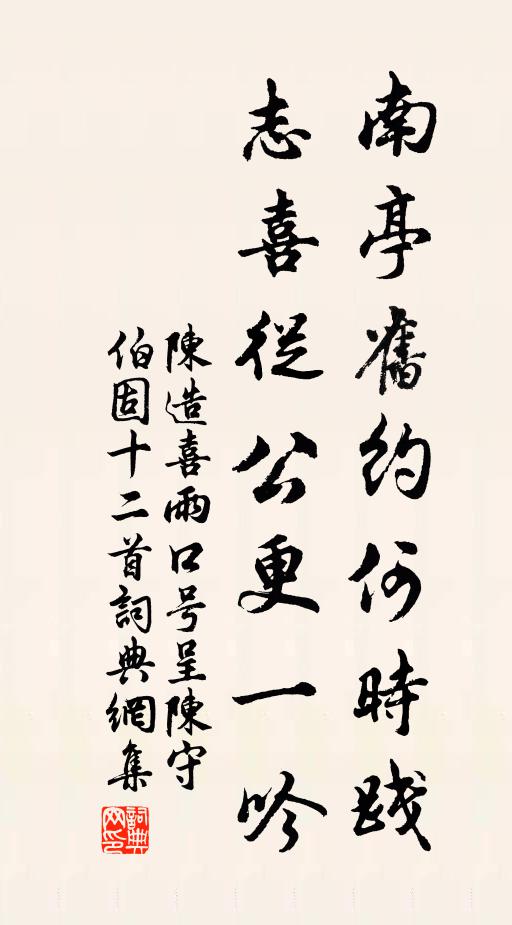 南亭舊約何時踐
志喜從公更一吟
陳造喜雨口号呈陳守
伯固十二首詞典網集
詞典网印